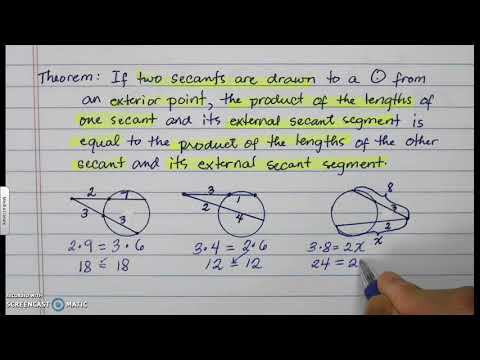 Theorem: If two secants are drawn to a ⊙ from
an exterior point, the product of the lengths of
one secant and its external secant segment is
equal to the product of the lengths of the other
secant and its external secant segment.
2 7
3 3
3 1
2 4
8
3
2
x
2•9 = 3•6
18 = 18
3•4 = 2•6
12 = 12
3•8 = 2x
24 = 2
RECORDED WITH
SCREENCAST MATIC